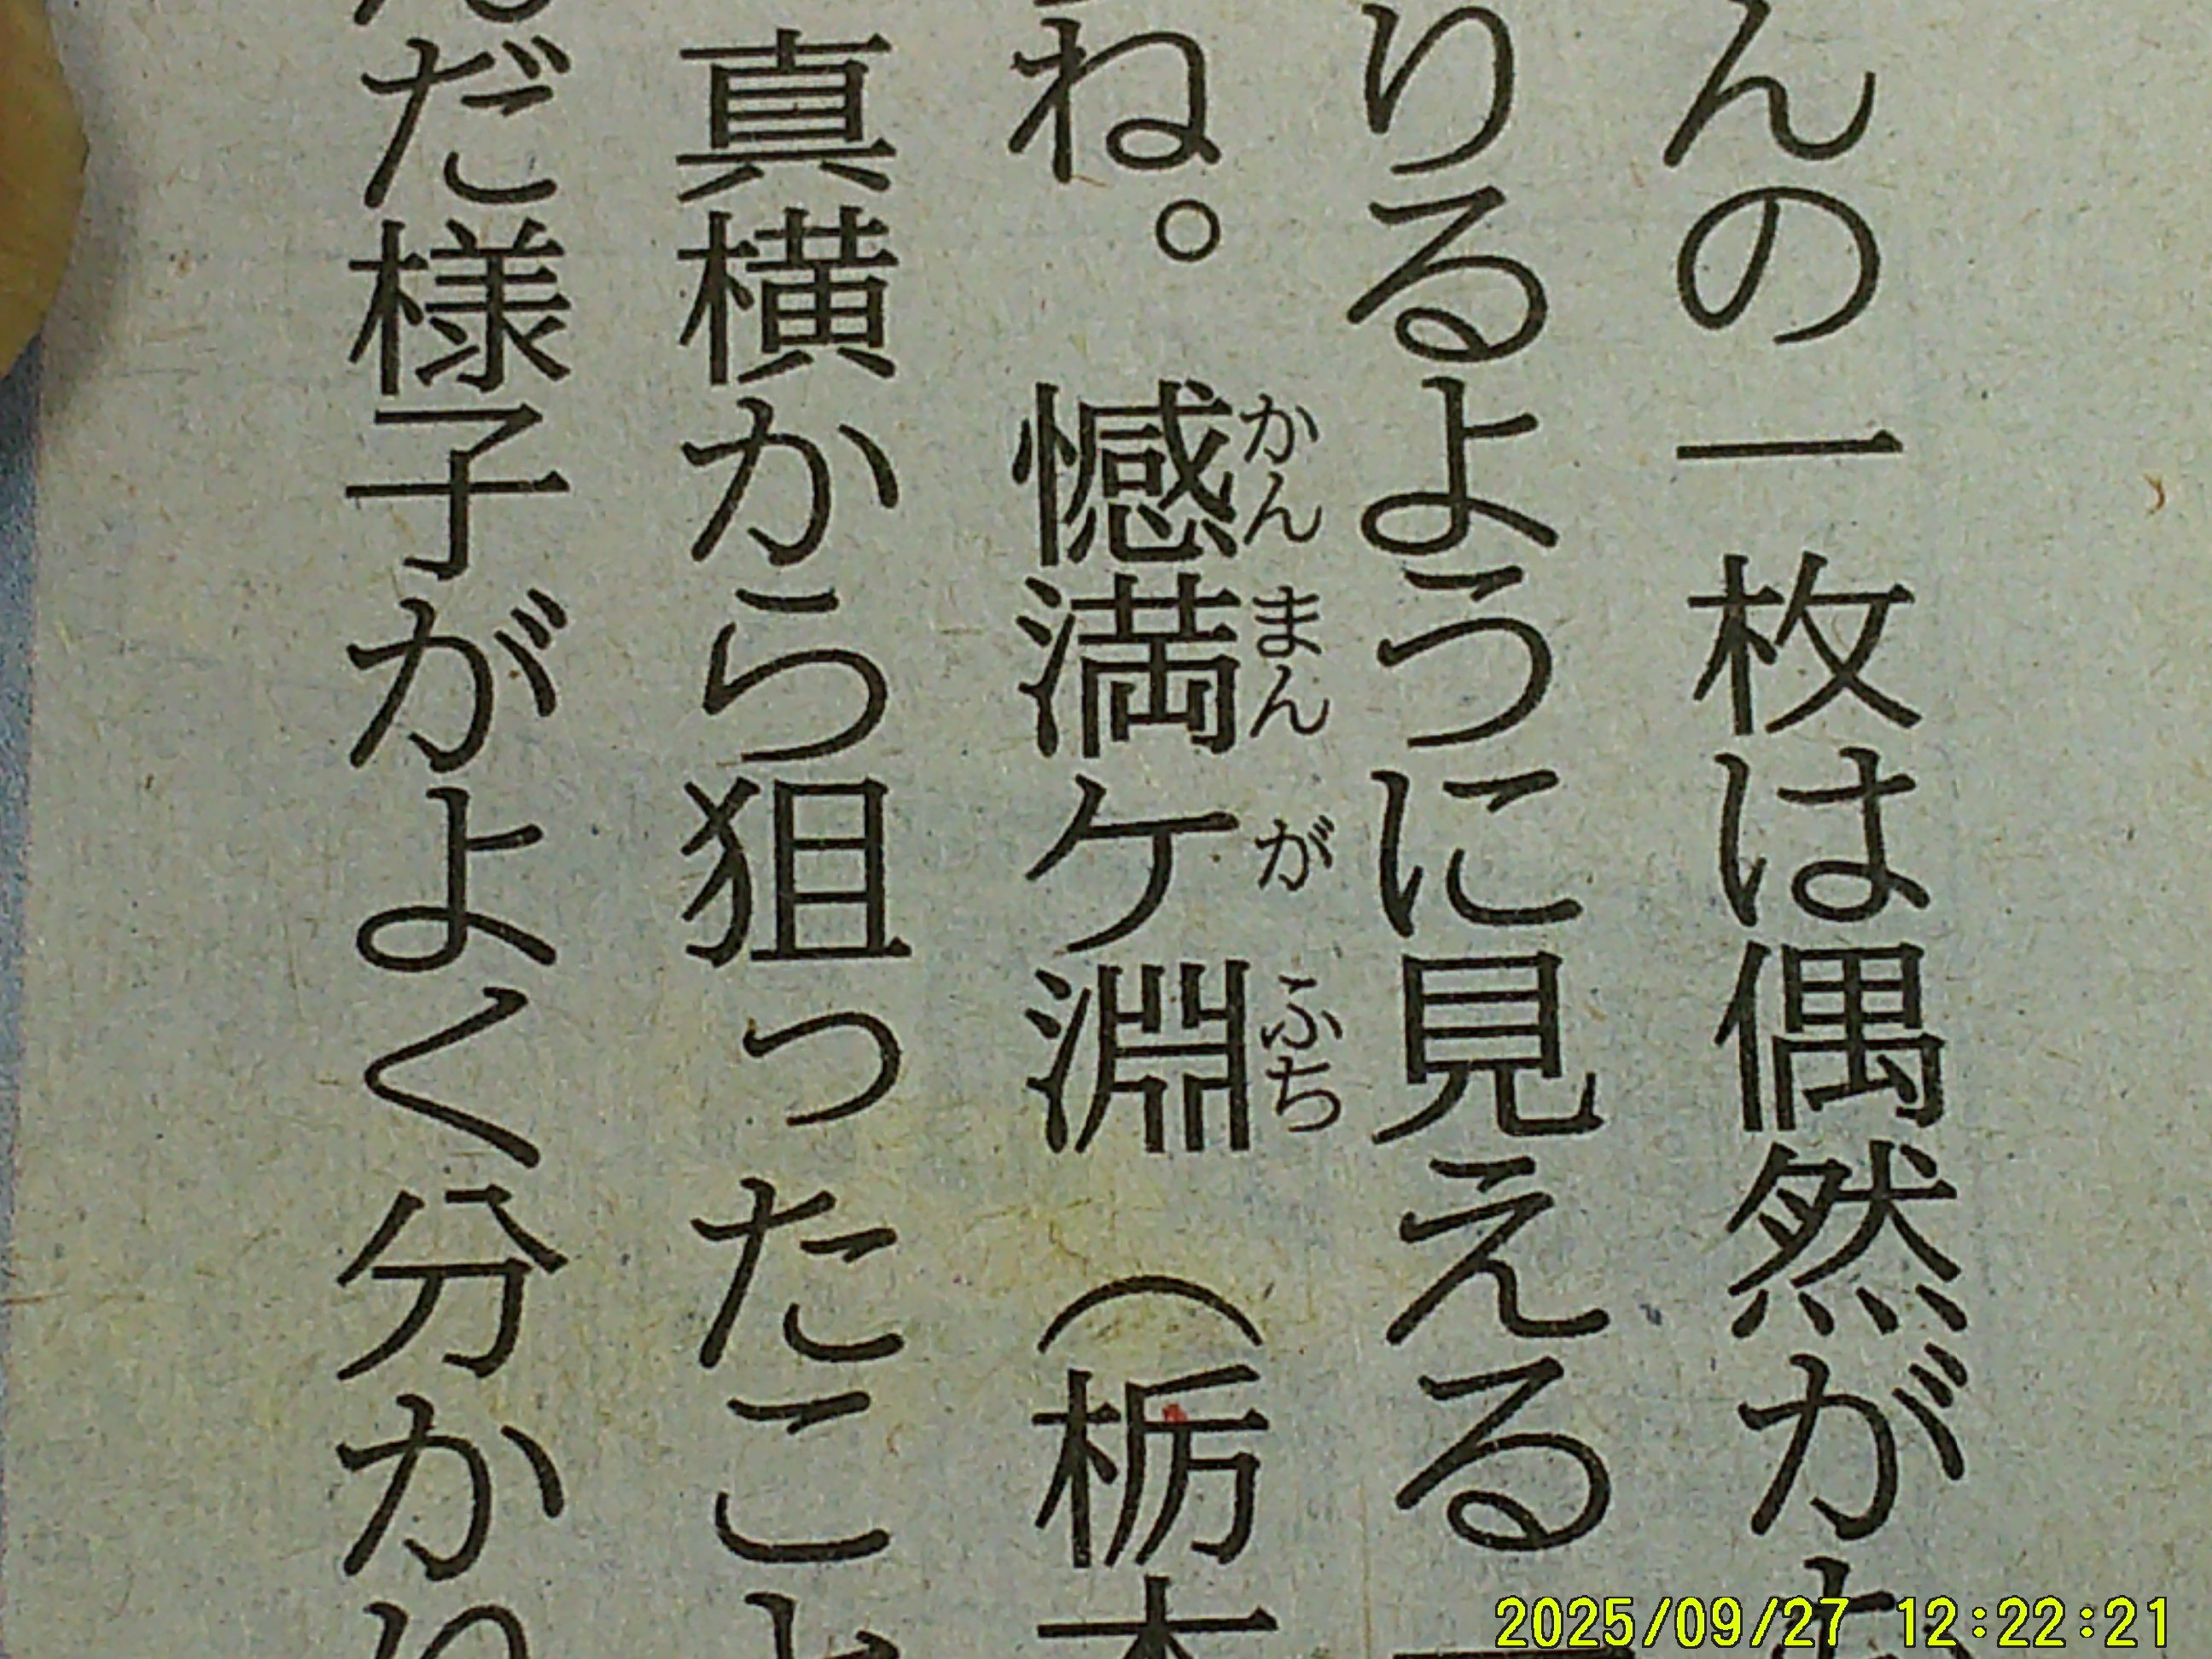 んの一枚は偶然が
りるように見える
ね。憾満ケ淵（栃木
かんまんがふち
真横から狙ったこと
んだ様子がよく分かり
2025/09/27 12:22:21